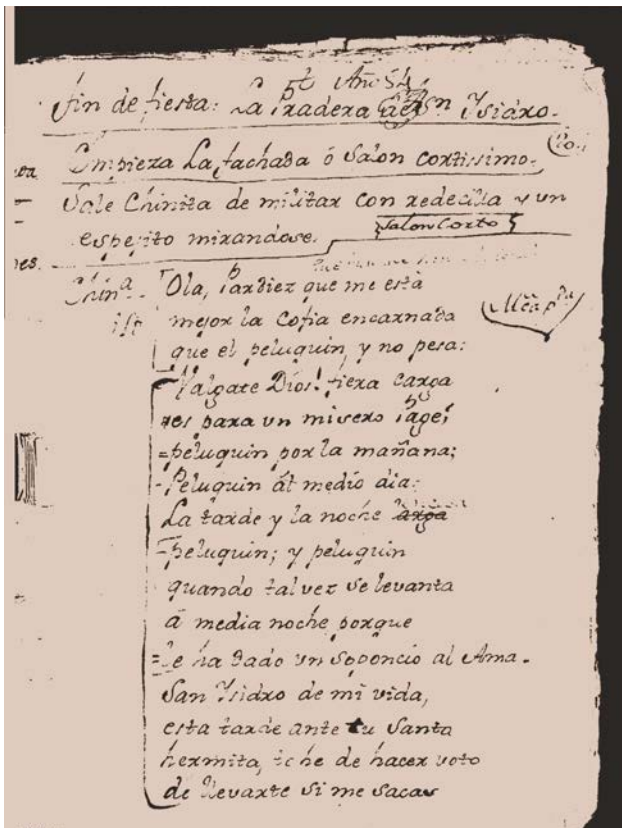 Año 54
fin de fiesta: La Pradera de Sn Ysidro.
Empieza La fachada ó Salon cortissimo.
Sale Chinita de militar con redecilla y un
espejito mirandose.
Salon Corto
China. Ola, Pardiez que me está
mejor la Cofia encarnada
que el peluquin, y no pesa:
Valgate Dios! fiera carga
es para un misero Page!
=peluquin por la mañana;
-Peluquin ál medio dia:
La tarde y la noche larga
=peluquin; y peluquin
quando tal vez se levanta
á media noche porque
=le ha dado un soponcio al Ama.
San Ysidro de mi vida,
esta tarde ante tu Santa
hermita, he de hacer voto
de llevarte si me sacas